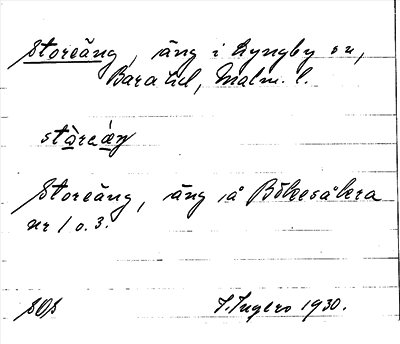 Storeäng, äng i Lyngby sn,
Bara hd, Malm. l.
Storeäng, äng på Bökesåkra
nr 1 o. 3.
SOS
I. Ingers 1930.